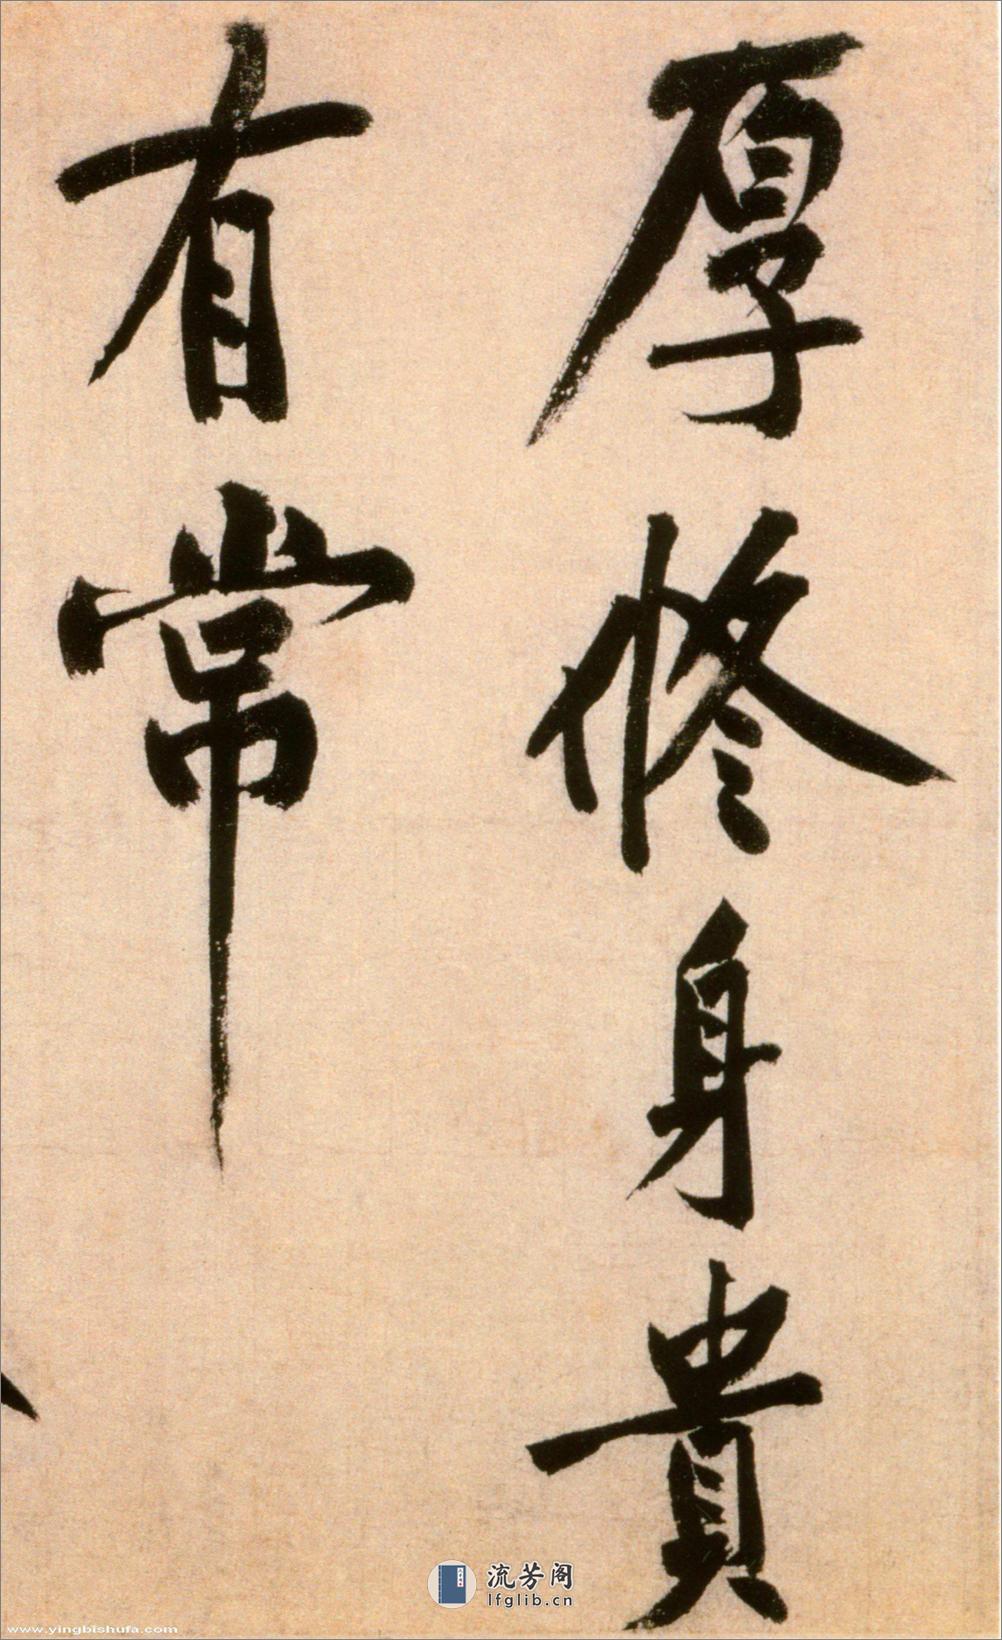 厚修身貴
有常
流芳阁
lfglib.cn
www.yingbishufa.com